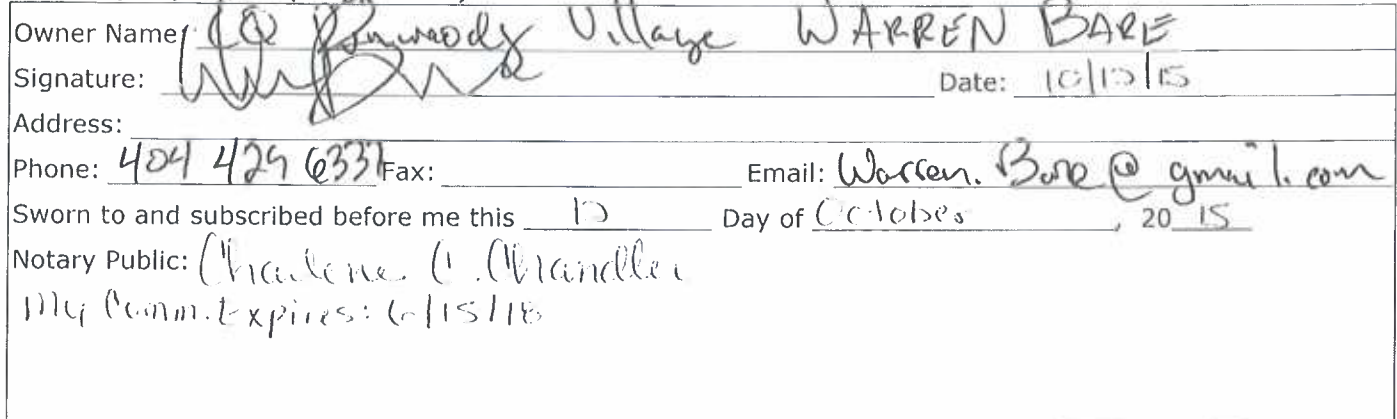 Owner Name: CQ Dunwoody Village WARREN BARE
Signature: Date: 10/13/15
Address:
Phone: 404 429 6337 Fax: Email: Warren.Bare@gmail.com
Sworn to and subscribed before me this 13 Day of October, 20 15
Notary Public: Charlene C. Chandler
My Comm. Expires: 6/15/18